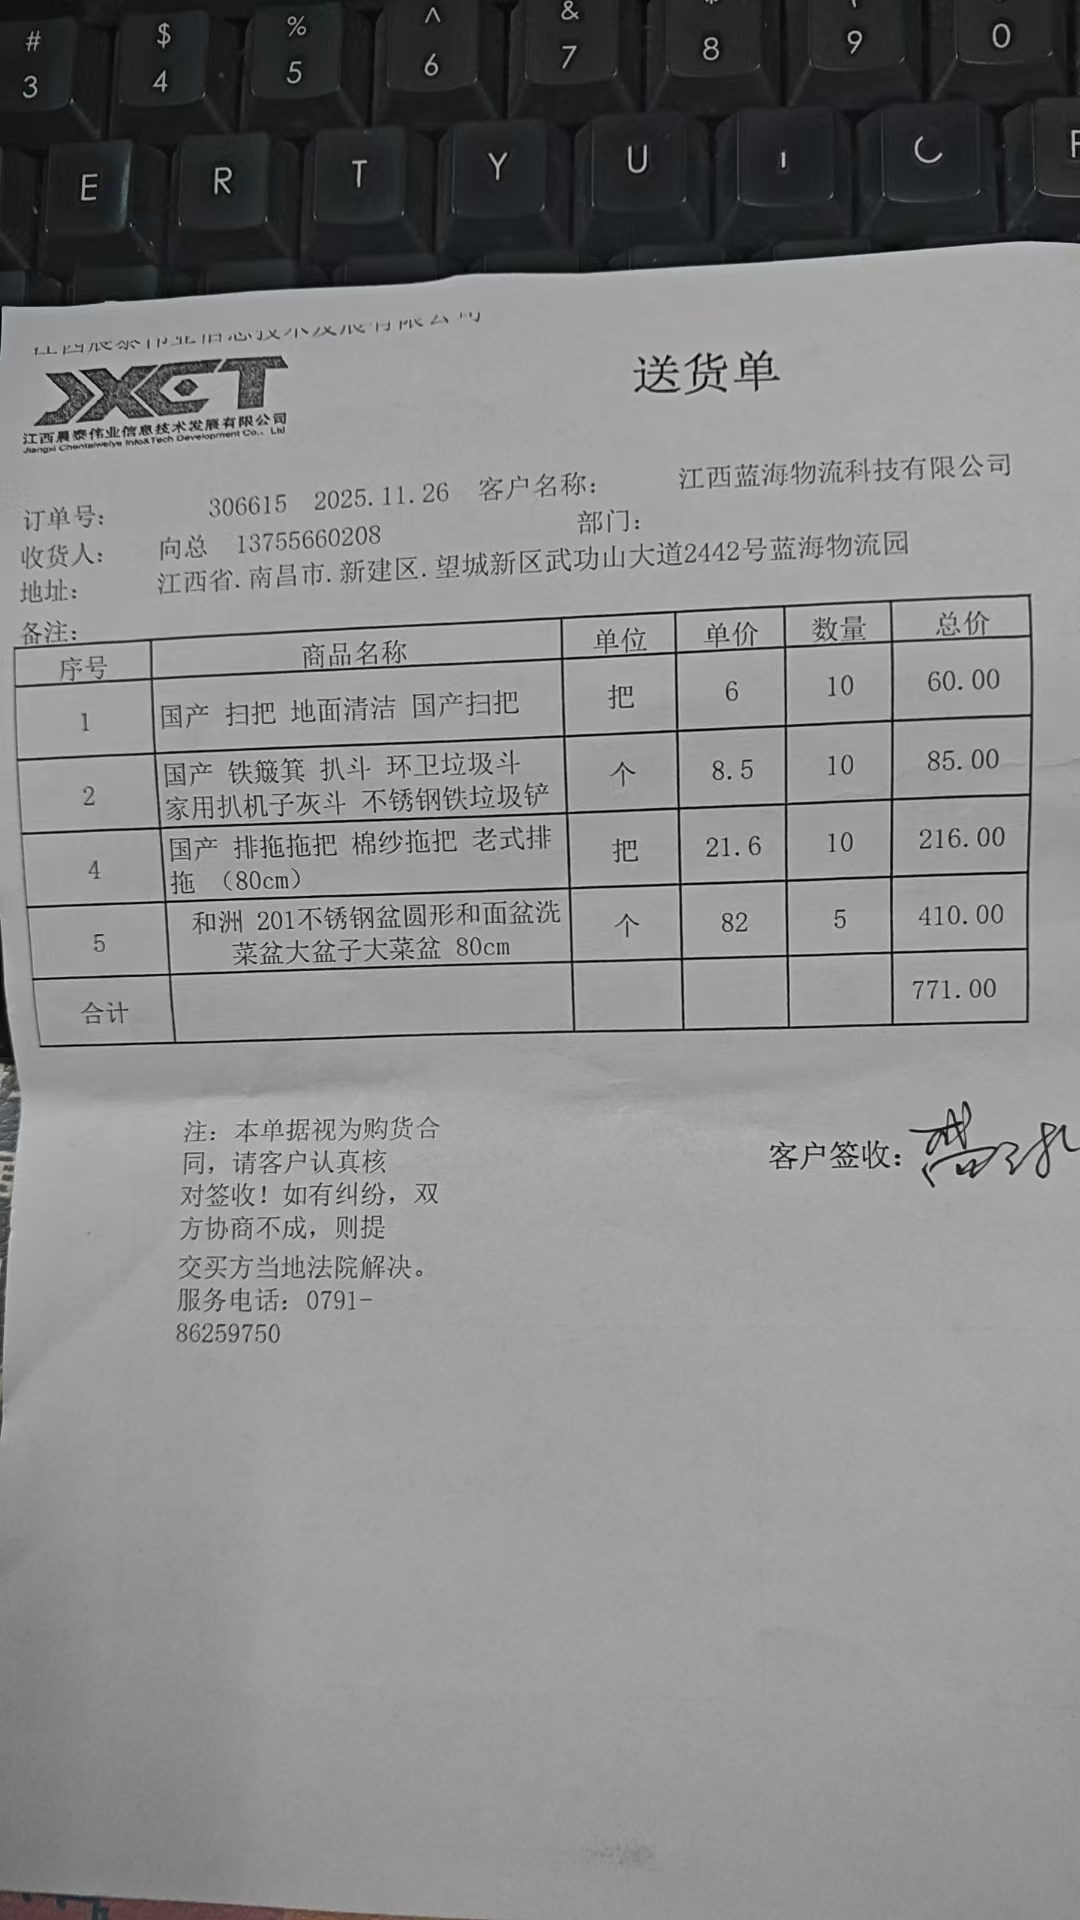 # $ % ^ & * ( )
3 4 5 6 7 8 9 0
E R T Y U I
江西晨泰伟业信息技术发展有限公司
JXCT
江西晨泰伟业信息技术发展有限公司
Jiangxi Chentaiweiye Info&Tech Development Co., Ltd
送货单
订单号: 306615 2025.11.26 客户名称: 江西蓝海物流科技有限公司
收货人: 向总 13755660208 部门:
地址: 江西省.南昌市.新建区.望城新区武功山大道2442号蓝海物流园
备注:
序号 商品名称 单位 单价 数量 总价
1 国产 扫把 地面清洁 国产扫把 把 6 10 60.00
2 国产 铁簸箕 扒斗 环卫垃圾斗
家用扒机子灰斗 不锈钢铁垃圾铲 个 8.5 10 85.00
4 国产 排拖拖把 棉纱拖把 老式排
拖 （80cm） 把 21.6 10 216.00
5 和洲 201不锈钢盆圆形和面盆洗
菜盆大盆子大菜盆 80cm 个 82 5 410.00
合计 771.00
注: 本单据视为购货合
同, 请客户认真核
对签收! 如有纠纷, 双
方协商不成, 则提
交买方当地法院解决。
服务电话: 0791-
86259750
客户签收: